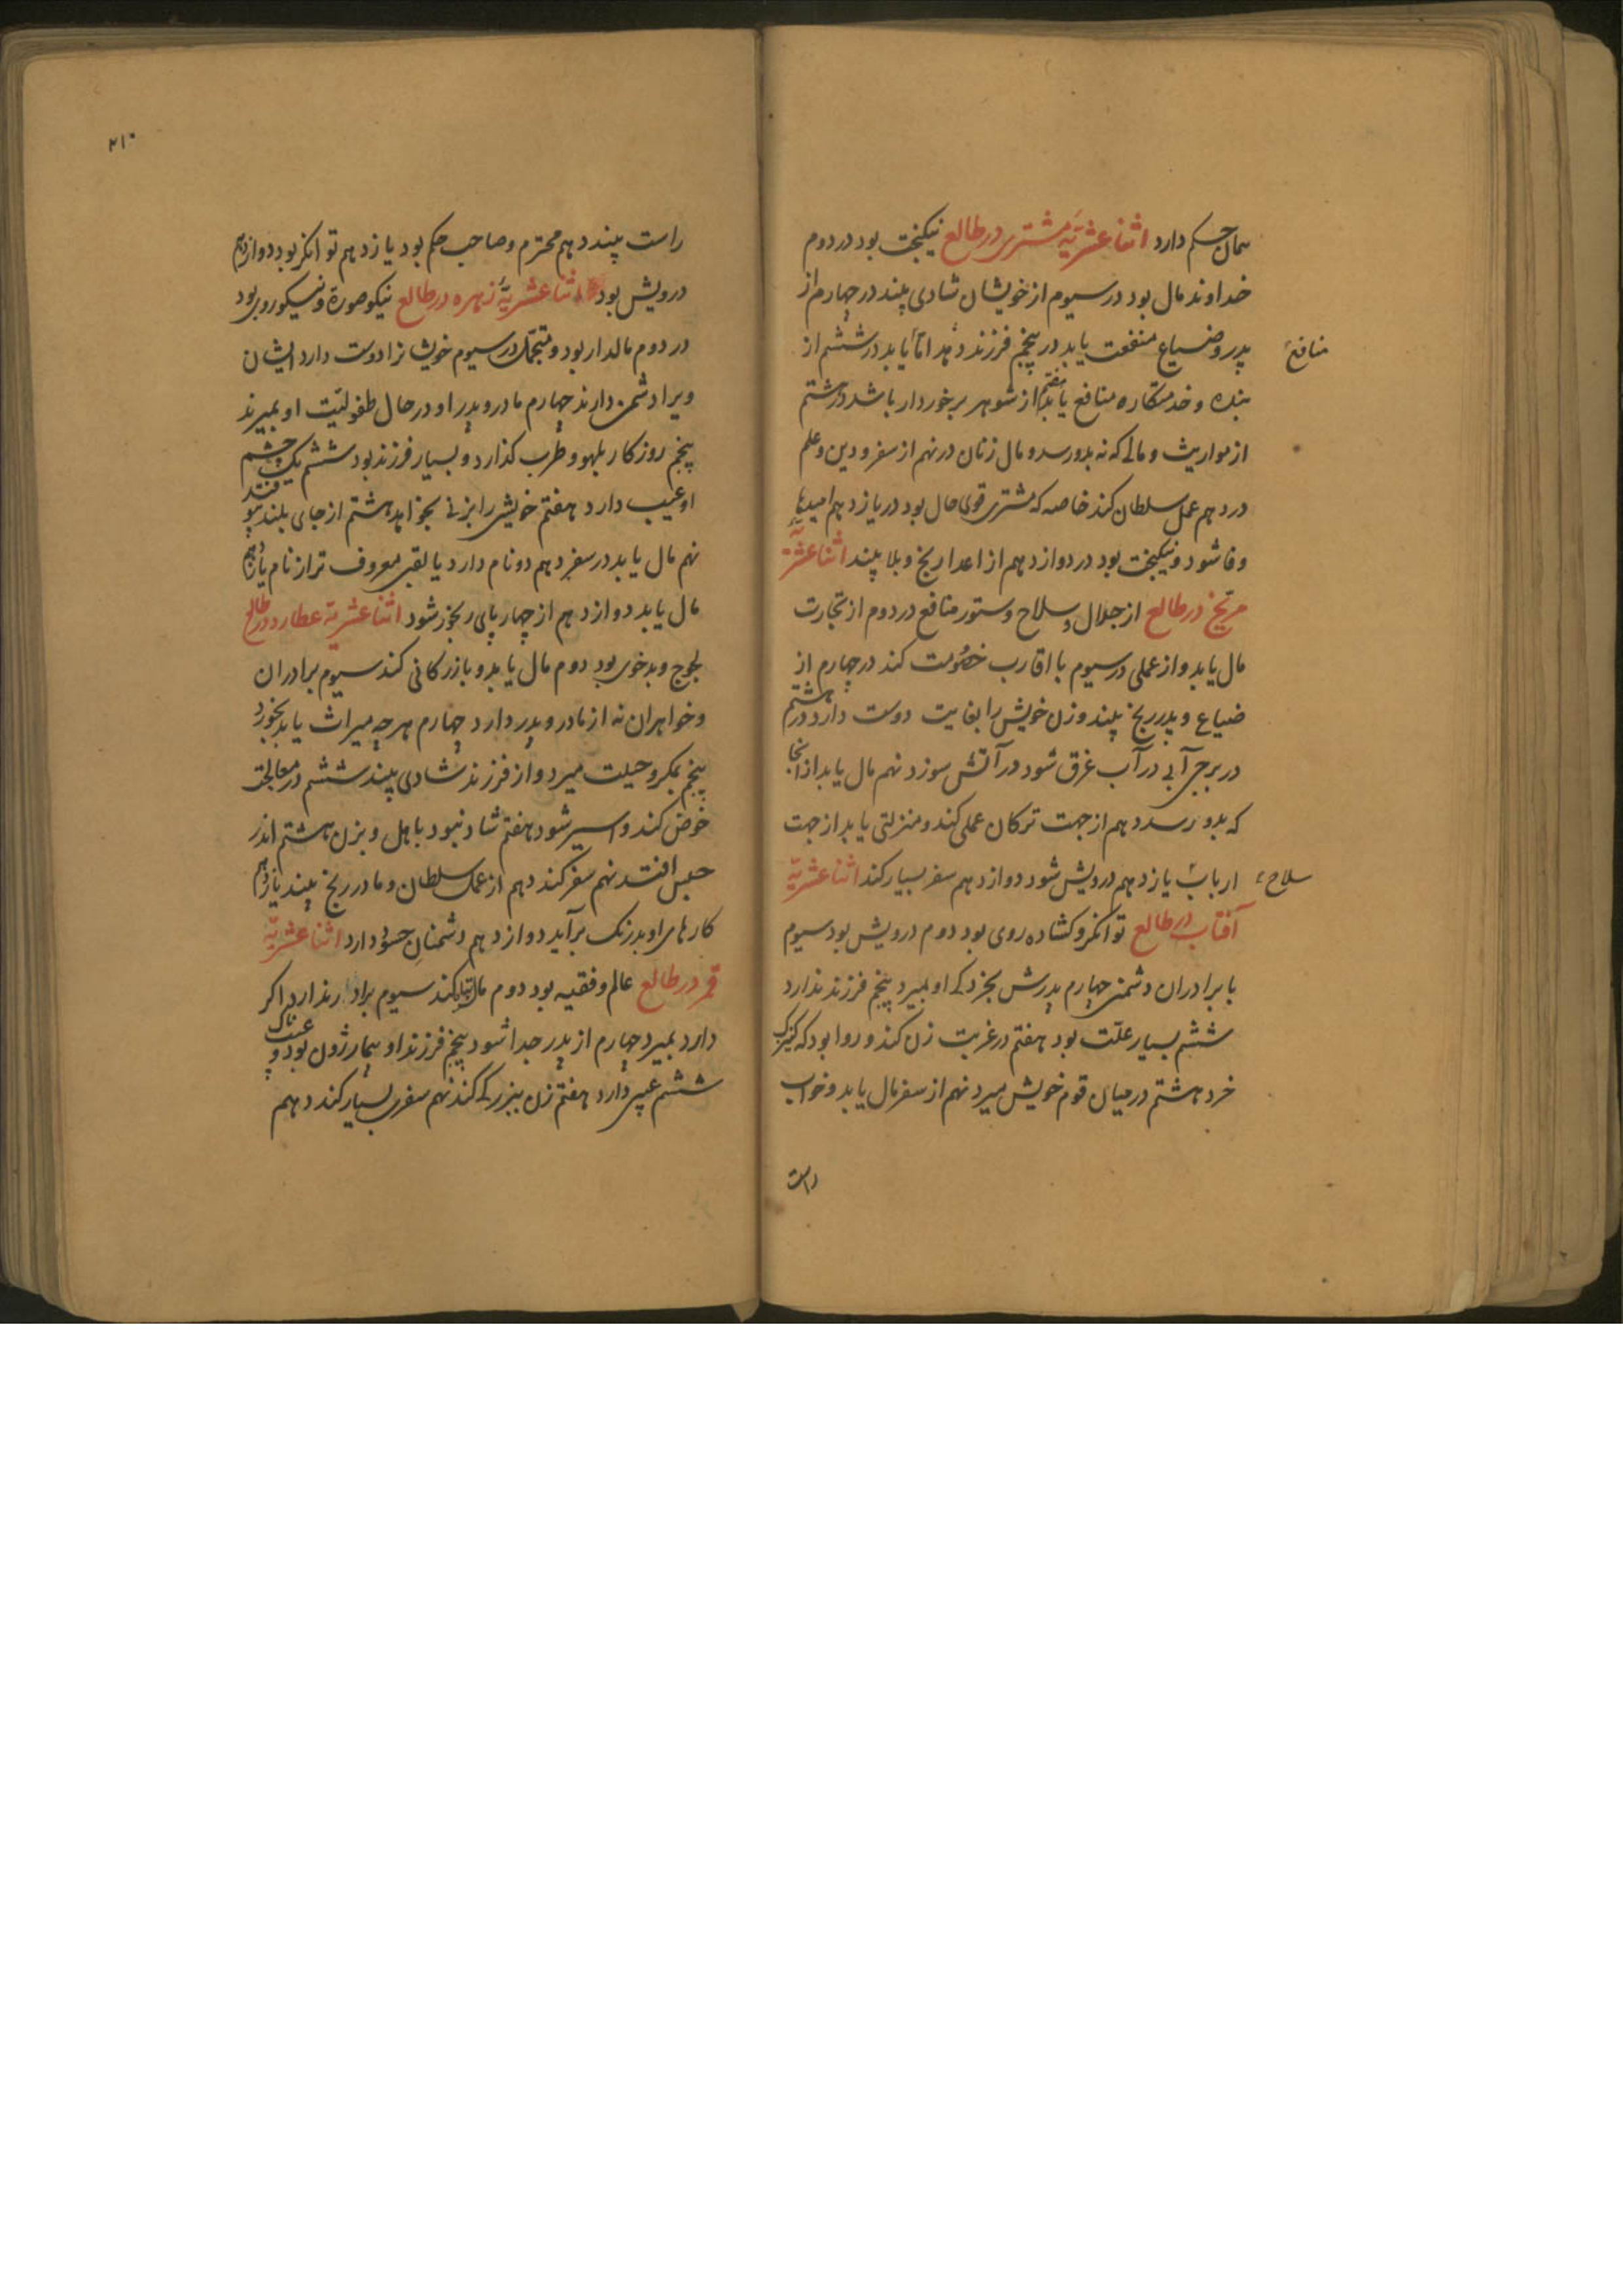 همان حکم دارد اثنا عشریّهٔ مشتری در طالع نیکبخت بود در دوم
خداوند مال بود در سیوم از خویشان شادی بیند در چهارم از
پدر و ضیاع منفعت یابد در پنجم فرزند دهد اما یابد در ششم از
منافع
بنده و خدمتکاره منافع یابد هفتم از شوهر برخوردار باشد در هشتم
از مواریث و مالی که نه بدو رسد و مال زنان در نهم از سفر و دین و علم
در دهم عمل سلطان کند خاصه که مشتری قوی حال بود در یازدهم امیدها
وفا شود و نیکبخت بود در دوازدهم از اعدا رنج و بلا بیند اثنا عشریّه
مریخ در طالع از جلال و سلاح و ستور منافع در دوم از تجارت
مال یابد و از عملی در سیوم با اقارب خصومت کند در چهارم از
ضیاع و پدر رنج بیند و زن خویش را بغایت دوست دارد در هشتم
در برج آبی در آب غرق شود در آتش سوزد نهم مال یابد از آنجا
که بدو رسد دهم از جهت ترکان عملی کند و منزلتی یابد از جهت
ارباب یازدهم درویش شود دوازدهم سفر بسیار کند اثنا عشریّه
سلاح
آفتاب در طالع توانکر و کشاده روی بود دوم درویش بود سیوم
با برادران دشمنی چهارم پدرش بخردکی او بمیرد پنجم فرزند ندارد
ششم بسیار علّت بود هفتم در غربت زن کند و روا بود که کنیزک
خرد هشتم در میان قوم خویش میرد نهم از سفر مال یابد و خواب
راست
۲۱۰
راست بیند دهم محترم و صاحب حکم بود یازدهم توانکر بود دوازدهم
درویش بود اثنا عشریّهٔ زهره در طالع نیکو صورة و نیکو روی بود
در دوم مالدار بود و متجمّل در سیوم خویشانرا دوست دارد ایشان
ویرا دشمن دارند چهارم مادر و پدر او در حال طفولیّت او بمیرند
پنجم روزکار بلهو و طرب کذارد و بسیار فرزند بود ششم یک چشم
او عیب دارد هفتم خویشی را بزنی بخواهد هشتم از جای بلند فتد
نهم مال یابد در سفر دهم دو نام دارد یا لقبی معروف تر از نام یازدهم
مال یابد دوازدهم از چهارپای رنجور شود اثنا عشریّهٔ عطارد در طالع
لجوج و بدخوی بود دوم مال یابد و بازرکانی کند سیوم برادران
و خواهران نه از مادر و پدر دارد چهارم هرچه میراث یابد بخورد
پنجم بمکر و حیلت میرد و از فرزند شادی بیند ششم در معالجت
خوض کند و اسیر شود هفتم شاد نبود باهل و بزن هشتم اندر
حبس افتد نهم سفر کند دهم از عمل سلطان و مادر رنج بیند یازدهم
کارهای او بدرنک برآید دوازدهم دشمنان حسود دارد اثنا عشریّه
قمر در طالع عالم و فقیه بود دوم مال تباه کند سیوم برادر ندارد اکر
دارد بمیرد چهارم از پدر جدا شود پنجم فرزند او بیمار بود و عیبناک
ششم عیبی دارد هفتم زن بزرک کند نهم سفری بسیار کند دهم